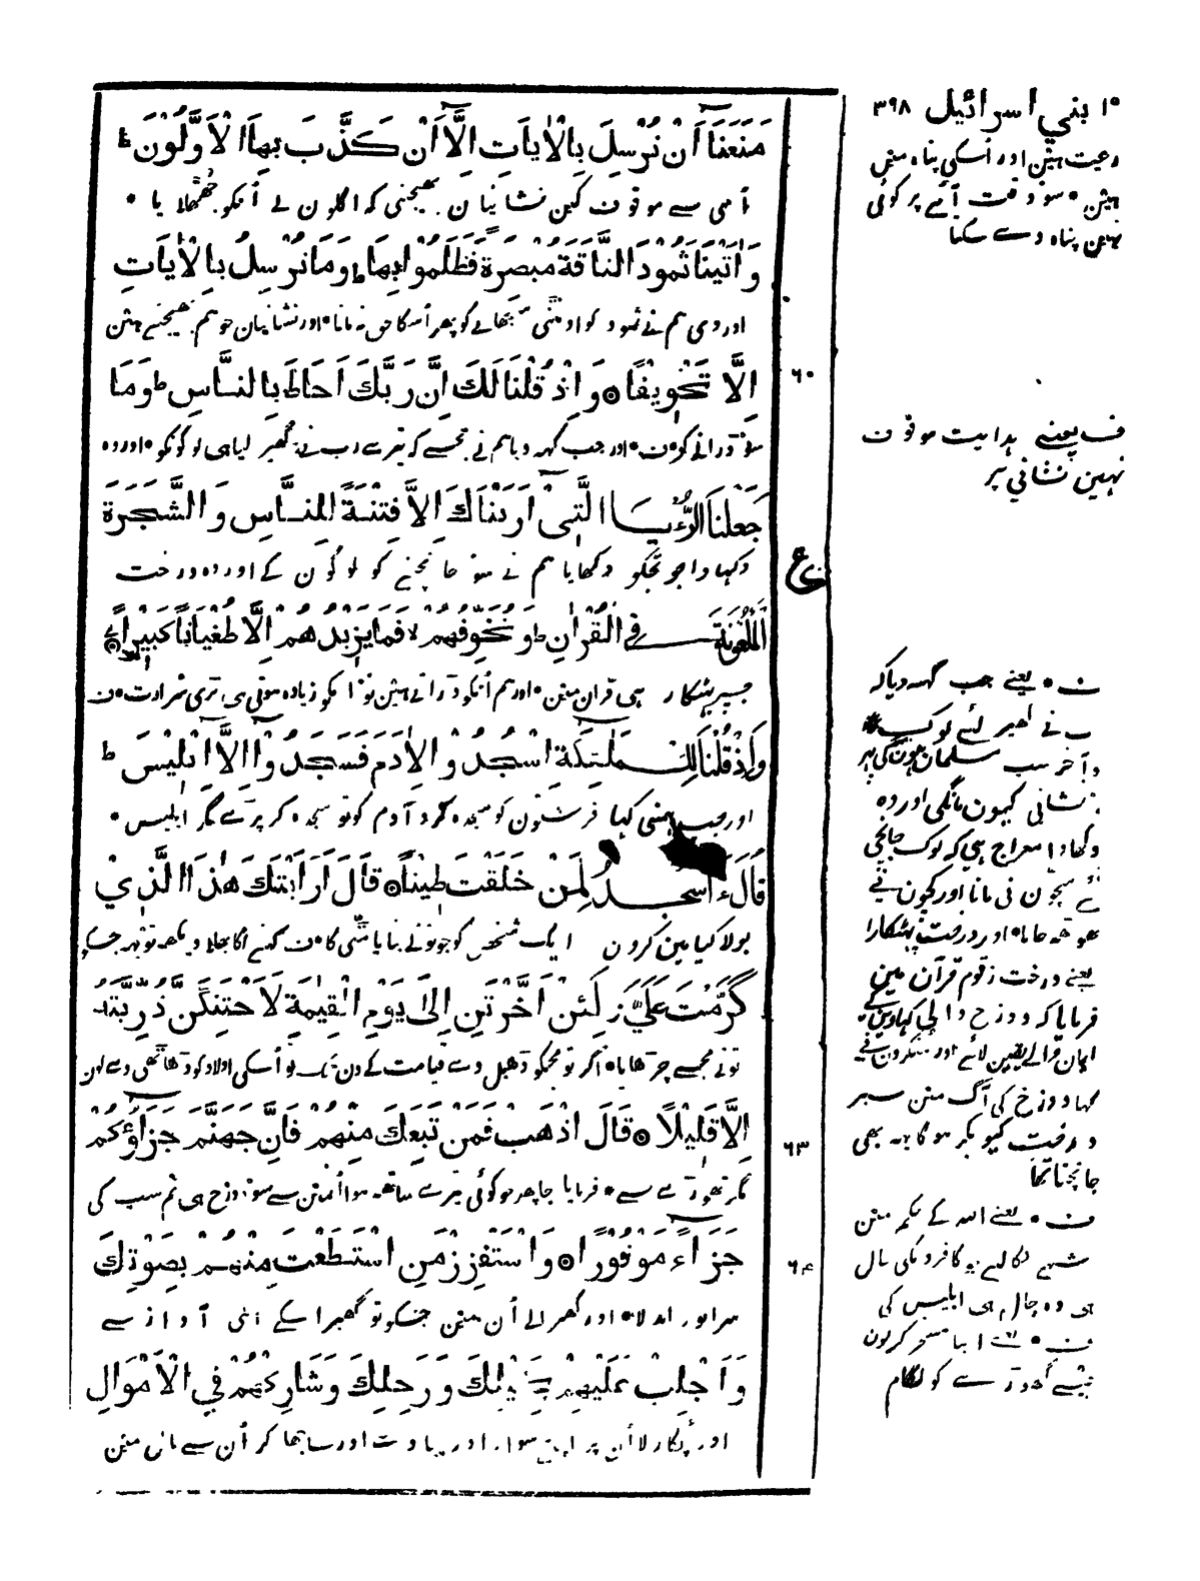 ۱۵ بني اسرائيل ۳۹۸
مَنَعَنَآ اَنْ نُرْسِلَ بِالْاٰيَاتِ اِلَّآ اَنْ كَذَّبَ بِهَا الْاَوَّلُوْنَ ط
اسی سے موقوف کین نشانیان بھیجنی کہ اگلون نے اُنکو جُھٹھلایا •
وَاٰتَيْنَا ثَمُوْدَ النَّاقَةَ مُبْصِرَةً فَظَلَمُوْا بِهَا ط وَمَا نُرْسِلُ بِالْاٰيَاتِ
اور دی ہم نے ثمود کو اونٹنی سجھانے کو پھر اُسکا حق نہ مانا • اور نشانیان جو ہم بھیجتے ہین
اِلَّا تَخْوِيْفًا ٥ وَ اِذْ قُلْنَا لَكَ اِنَّ رَبَّكَ اَحَاطَ بِالنَّاسِ ط وَمَا
۶۰
سو ڈرانے کو • ف • اور جب کہہ دیا ہم نے تجھسے کہ تیرے رب نے گھیر لیا ہی لوگونکو • اور وہ
جَعَلْنَا الرُّءْيَا الَّتِيْٓ اَرَيْنَاكَ اِلَّا فِتْنَةً لِلنَّاسِ وَ الشَّجَرَةَ
دکہاوا جو تجکو دکھایا ہم نے سو جانچنے کو لوگون کے اور وہ درخت
الْمَلْعُوْنَةَ فِي الْقُرْاٰنِ ط وَ نُخَوِّفُهُمْ لا فَمَا يَزِيْدُهُمْ اِلَّا طُغْيَانًا كَبِيْرًا ٥
جسپر پھٹکار ہی قران مین • اور ہم اُنکو ڈراتے ہین تو انکو زیادہ ہوتی ہی بڑی شرارت • ف
وَاِذْ قُلْنَا لِلْمَلٰٓئِكَةِ اسْجُدُوْا لِاٰدَمَ فَسَجَدُوْٓا اِلَّآ اِبْلِيْسَ ط
اور جب ہمنے کہا فرشتون کو سجدہ کرو آدم کو تو سجدہ کر پڑے مگر ابلیس •
قَالَ ءَاَسْجُدُ لِمَنْ خَلَقْتَ طِيْنًا ٥ قَالَ اَرَاَيْتَكَ هٰذَا الَّذِيْ
بولا کیا مین کرون ایک شخص کو جو تونے بنایا مٹی کا • ف کہنے لگا بھلا دیکھ تو یہہ جسکو
كَرَّمْتَ عَلَيَّ ز لَئِنْ اَخَّرْتَنِ اِلٰى يَوْمِ الْقِيٰمَةِ لَاَحْتَنِكَنَّ ذُرِّيَّتَهٗٓ
تونے مجھسے چڑھایا • اگر تو مجکو ڈھیل دے قیامت کے دن تک تو اُسکی اولاد کو ڈھانٹھی دے لون
اِلَّا قَلِيْلًا ٥ قَالَ اذْهَبْ فَمَنْ تَبِعَكَ مِنْهُمْ فَاِنَّ جَهَنَّمَ جَزَآؤُكُمْ
۶۳
مگر تھوڑے سے • فرمایا جا پھر جو کوئی تیرے ساتھ ہوا اُنمین سے سو دوزخ ہی تم سب کی
جَزَآءً مَوْفُوْرًا ٥ وَاسْتَفْزِزْ مَنِ اسْتَطَعْتَ مِنْهُمْ بِصَوْتِكَ
۶۴
سزا پورا بدلا • اور گھبرا لے اُن مین جسکو تو گھبرا سکے اپنی آواز سے
وَاَجْلِبْ عَلَيْهِمْ بِخَيْلِكَ وَرَجِلِكَ وَشَارِكْهُمْ فِي الْاَمْوَالِ
اور پُکار لا اُن پر اپنے سوار اور پیادے اور ساجھا کر اُن سے مال مین
رعیت ہین اور اُسکی پناہ مین
ہین • سو وقت آئے پر کوئی
نہین پناہ دے سکتا
ف یعنے ہدایت موقوف
نہین نشانی پر
ع
ف • یعنے جب کہہ دیا کہ
رب نے گھیر لئے لوک
و آخر سب مسلمان ہونگے پھر
نشانی کیون مانگی اور وہ
دکھاوا معراج ہی کہ لوک جانچے
سچون نی مانا اور کچون نے
جھوٹھ جانا • اور درخت پھٹکارا
یعنے درخت زقوم قرآن مین
فرمایا کہ دوزخ والے کہاوین گے
ایمان والے یقین لائے اور منکرون نے
کہا دوزخ کی آگ مین سبز
درخت کیونکر ہوگا یہہ بھی
جانچنا تھا
ف • یعنے اللہ کے حکم مین
شبہے نکالنے ہو کافرونکی چال
ہی وہ چال ہی ابلیس کی
ف • یعنے اپنا مسخر کرون
جیسے گھوڑے کو لگام